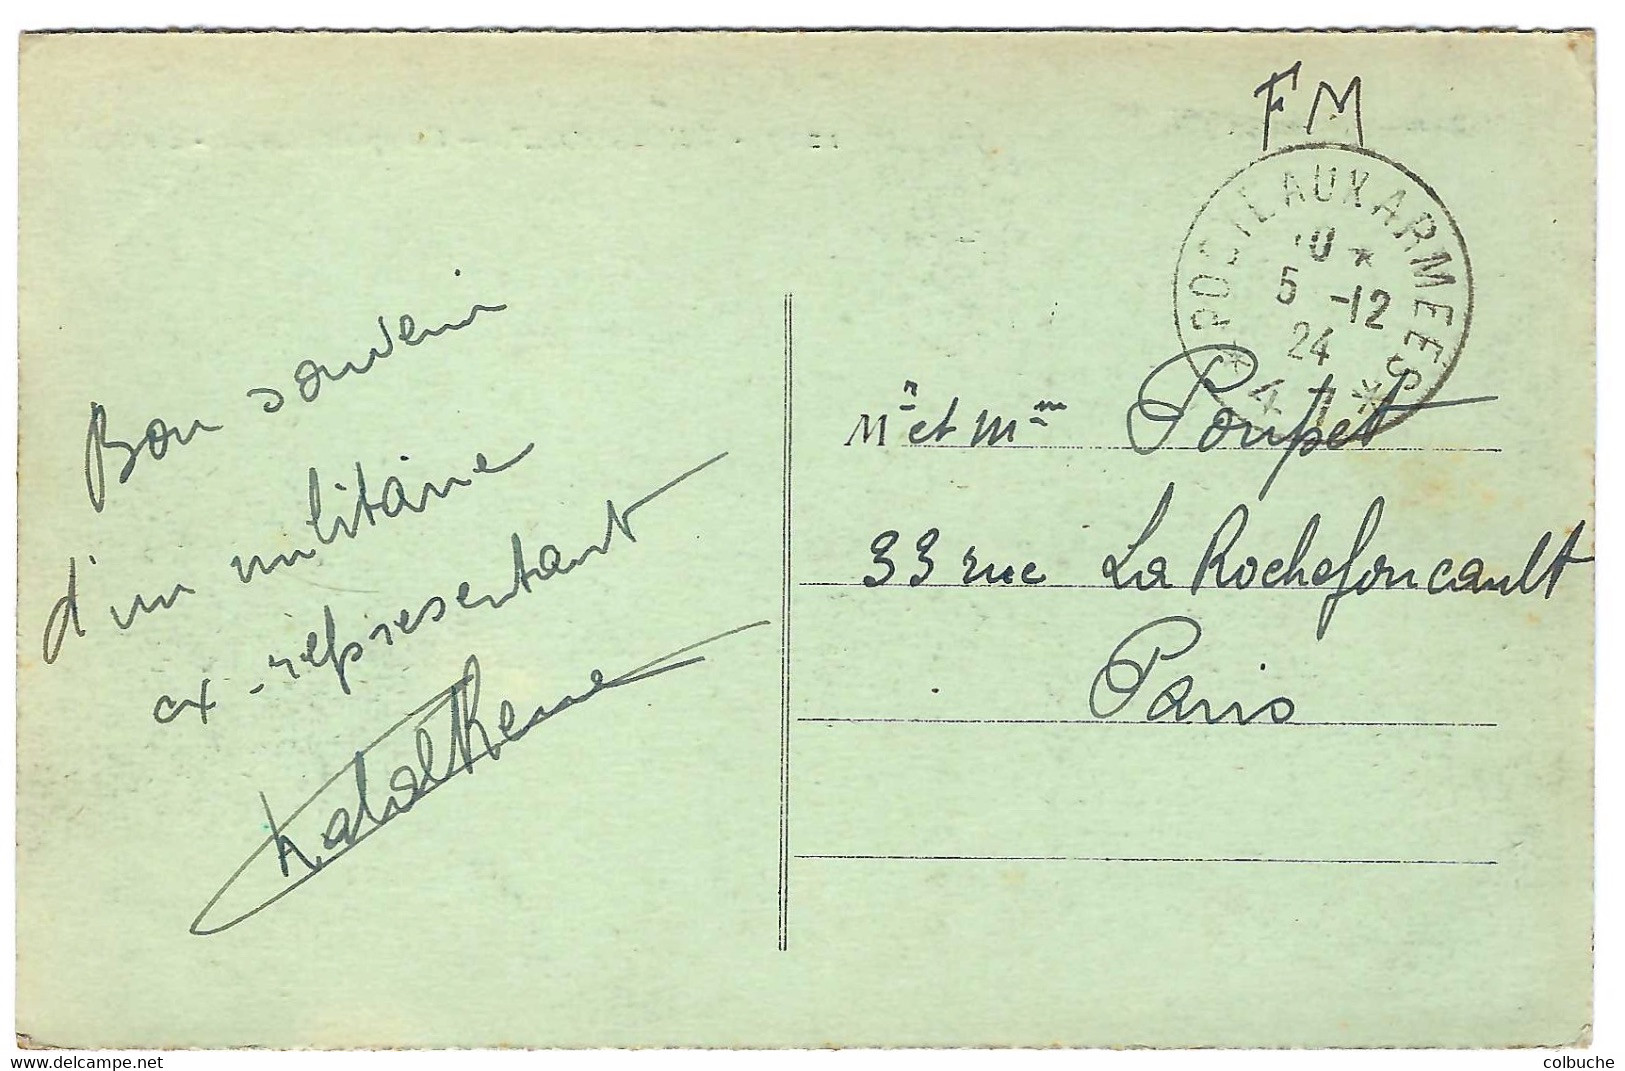 FM
POSTE AUX ARMEES
10 *
5 -12
24
* 4 *
Bon souvenir
d'un militaire
ex-représentant
Mr et Mme Poupet
33 rue La Rochefoucault
Paris
www.delcampe.net
colbuche